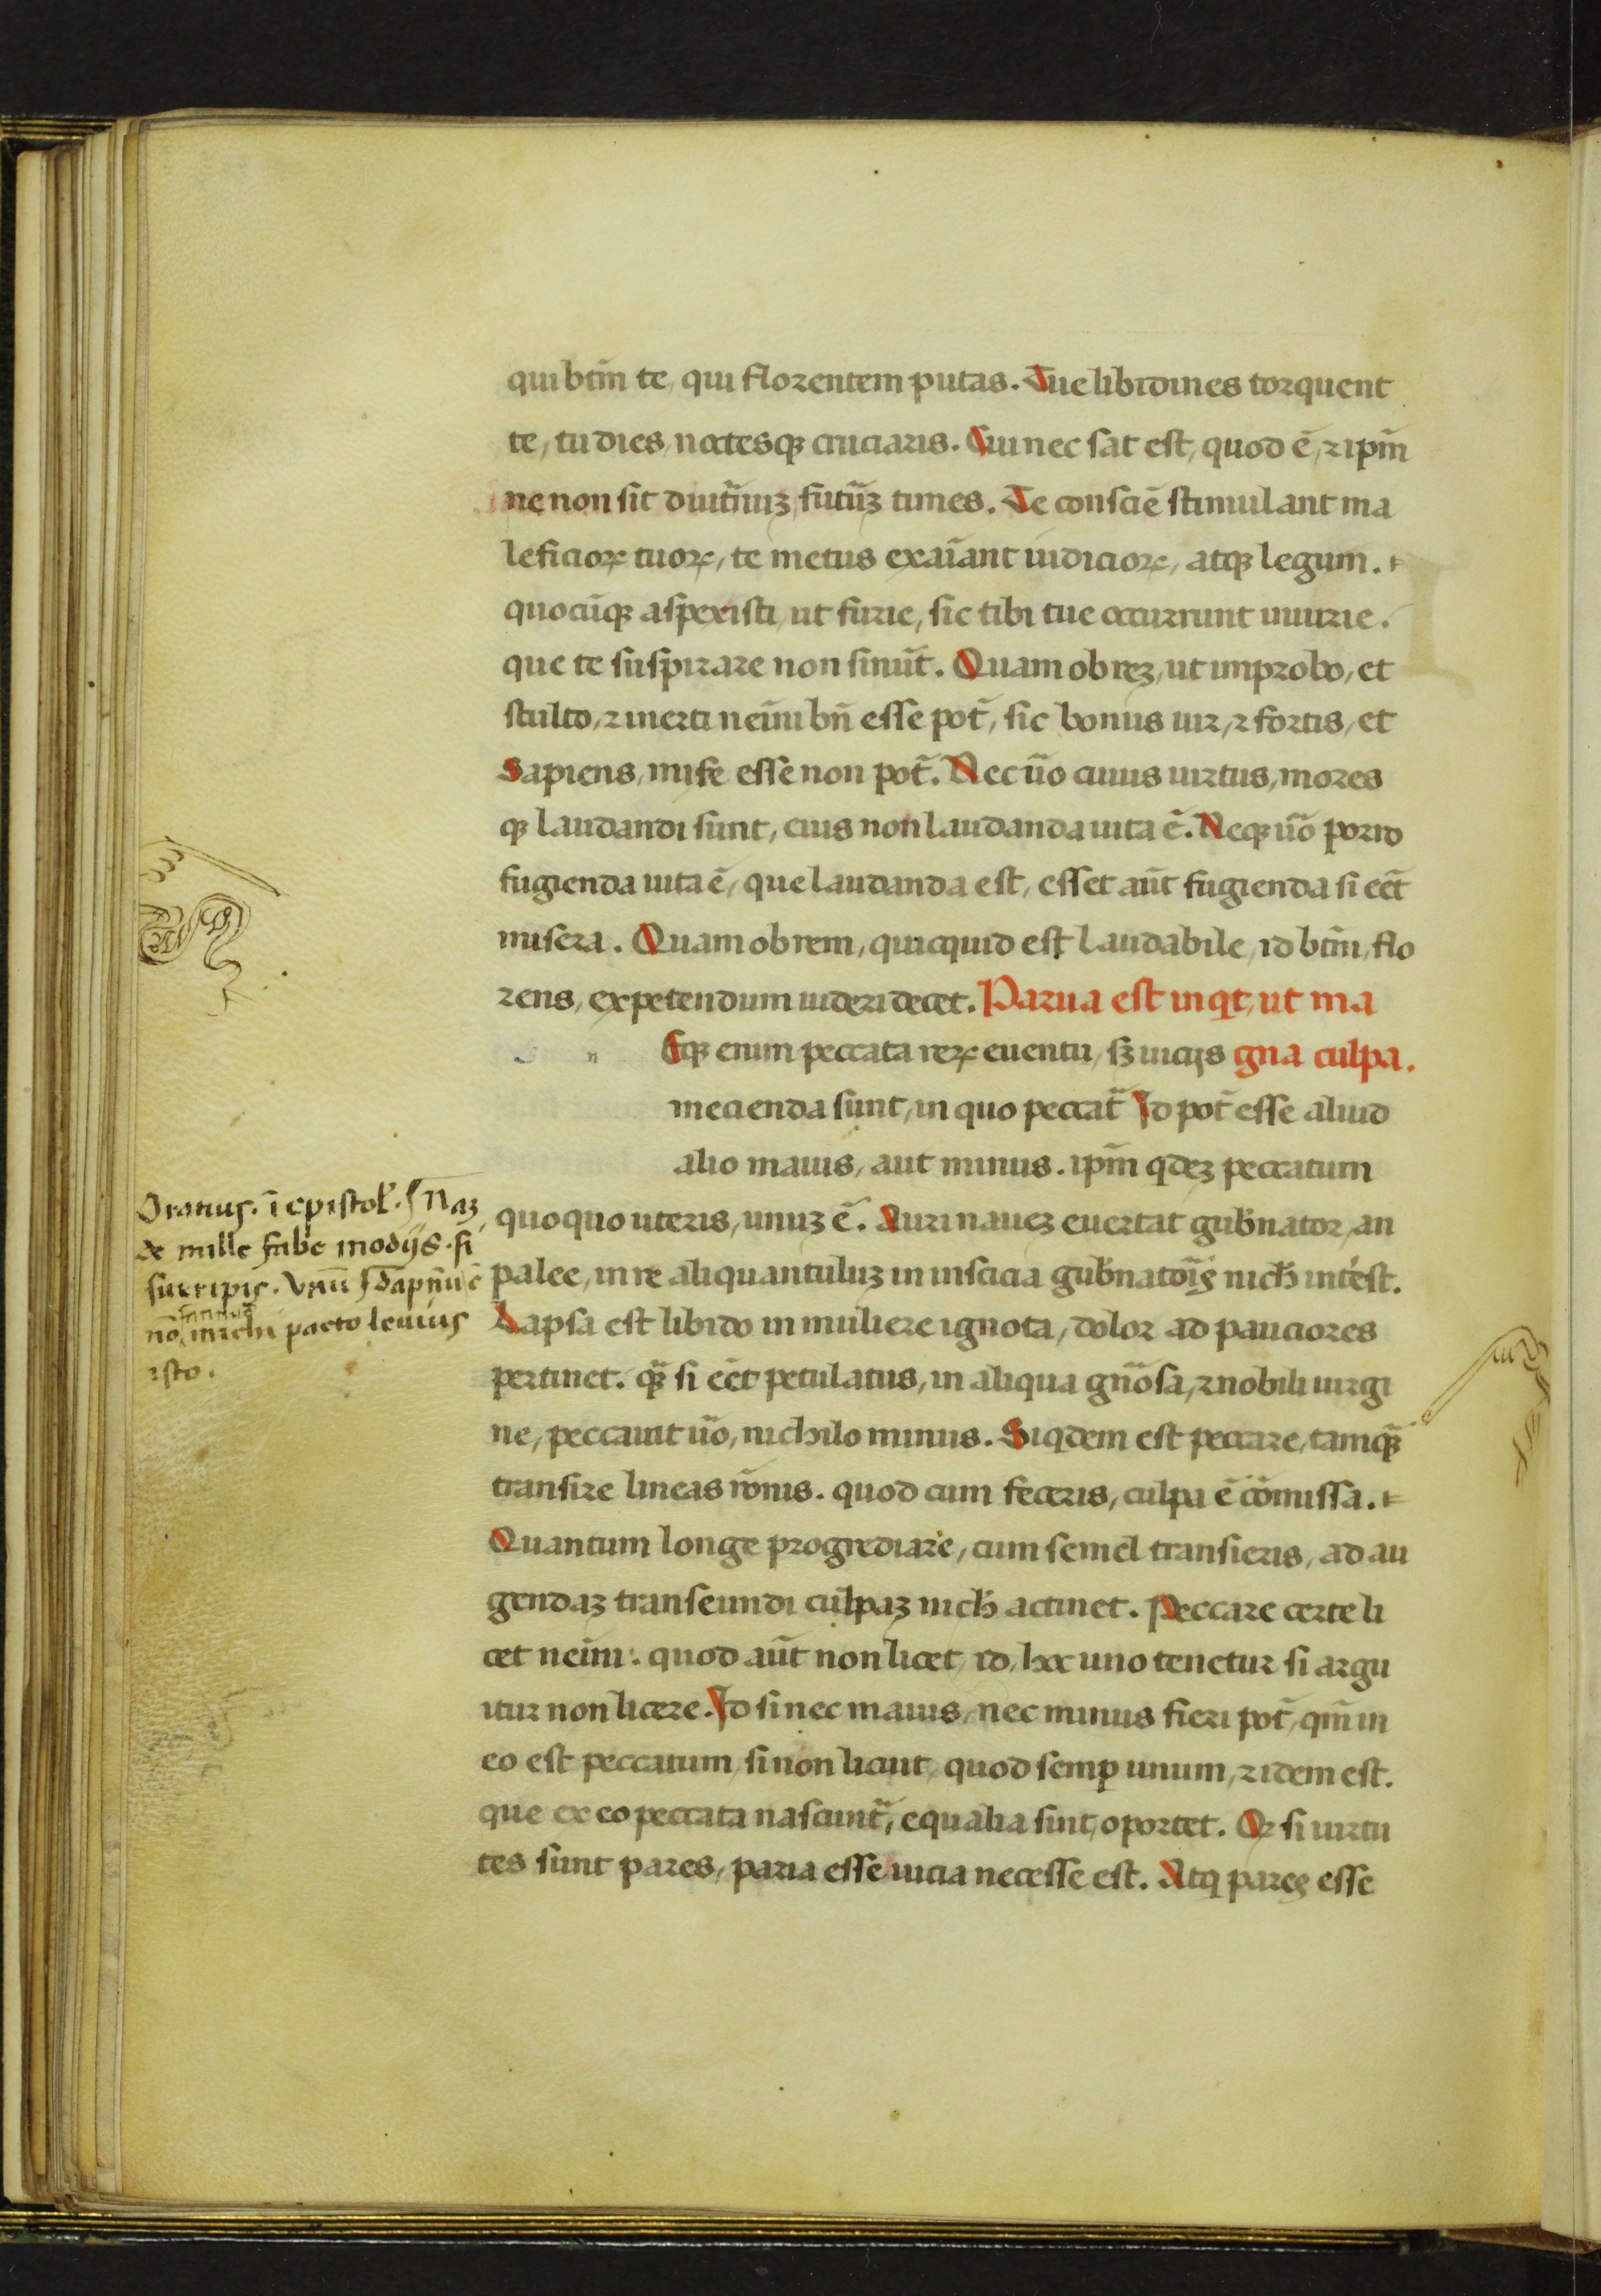 qui btm̄ te, qui florentem putas. Tue libidines torquent
te, tu dies, noctesqꝫ cruciaris. Cui nec sat est, quod ē, ⁊ ipm̄
ne non sit diut̄nuꝫ, futūꝫ times. Te consciē stimulant ma
leficioꝝ tuoꝝ, te metus exaīant iudicioꝝ, atqꝫ legum.
quocūqꝫ aspexisti, ut furie, sic tibi tue occurrunt iniurie.
que te suspirare non sinūt. Quam ob reꝫ, ut improbo, et
stulto, ⁊ inerti nemī bn̄ esse pot̄, sic bonus uir, ⁊ fortis, et
Sapiens, miser esse non pot̄. Nec ūo cuius uirtus, mores
qꝫ laudandi sunt, eius non laudanda uita ē. Neqꝫ ūo porro
fugienda uita ē, que laudanda est, esset aūt fugienda si eēt
misera. Quam ob rem, quicquid est laudabile, id btm̄, flo
rens, expetendum uideri decet. Parua est inqt, ut ma
Eqꝫ enim peccata reꝝ euentu, sꝫ uicijs gna culpa.
mecienda sunt, in quo peccat̄ Id pot̄ esse aliud
alio maius, aut minus. ipm̄ qdeꝫ peccatum
quoquo uteris, unuꝫ ē. Auri naueꝫ euertat gub̄nator, an
palee, in re aliquantuluꝫ in inscicia gub̄natoris nich̄ int̄est.
Lapsa est libido in muliere ignota, dolor ad pauciores
pertinet. qꝫ̄ si eēt petulatus, in aliqua gn̄osa, ⁊ nobili uirgi
ne, peccauit ūo, nichilo minus. Siqdem est peccare, tamqꝫ̄
transire lineas rōnis. quod cum feceris, culpa ē cōmissa.
Quantum longe progrediare, cum semel transieris, ad au
gendaꝫ transeundi culpaꝫ nich̄ actinet. Peccare certe li
cet nemī. quod aūt non licet, id, hoc uno tenetur si argu
itur non licere. Id si nec maius, nec minus fieri pot̄, qm̄ in
eo est peccatum, si non licuit, quod semꝑ unum, ⁊ idem est.
que ex eo peccata nascunt̄, equalia sint, oportet. Qꝛ si uirtu
tes sunt pares, paria esse uicia necesse est. Atq pares esse
Oratius. ī epistol̄. Naꝫ
de mille fabe modijs. si
surripis. Vnū Dapnū ē
nō michi pacto leuius
isto.